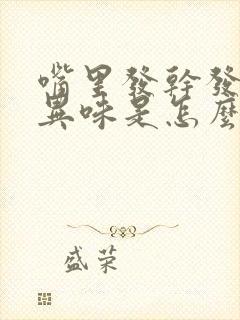 嘴里發幹發
異味是怎麼
盛荣